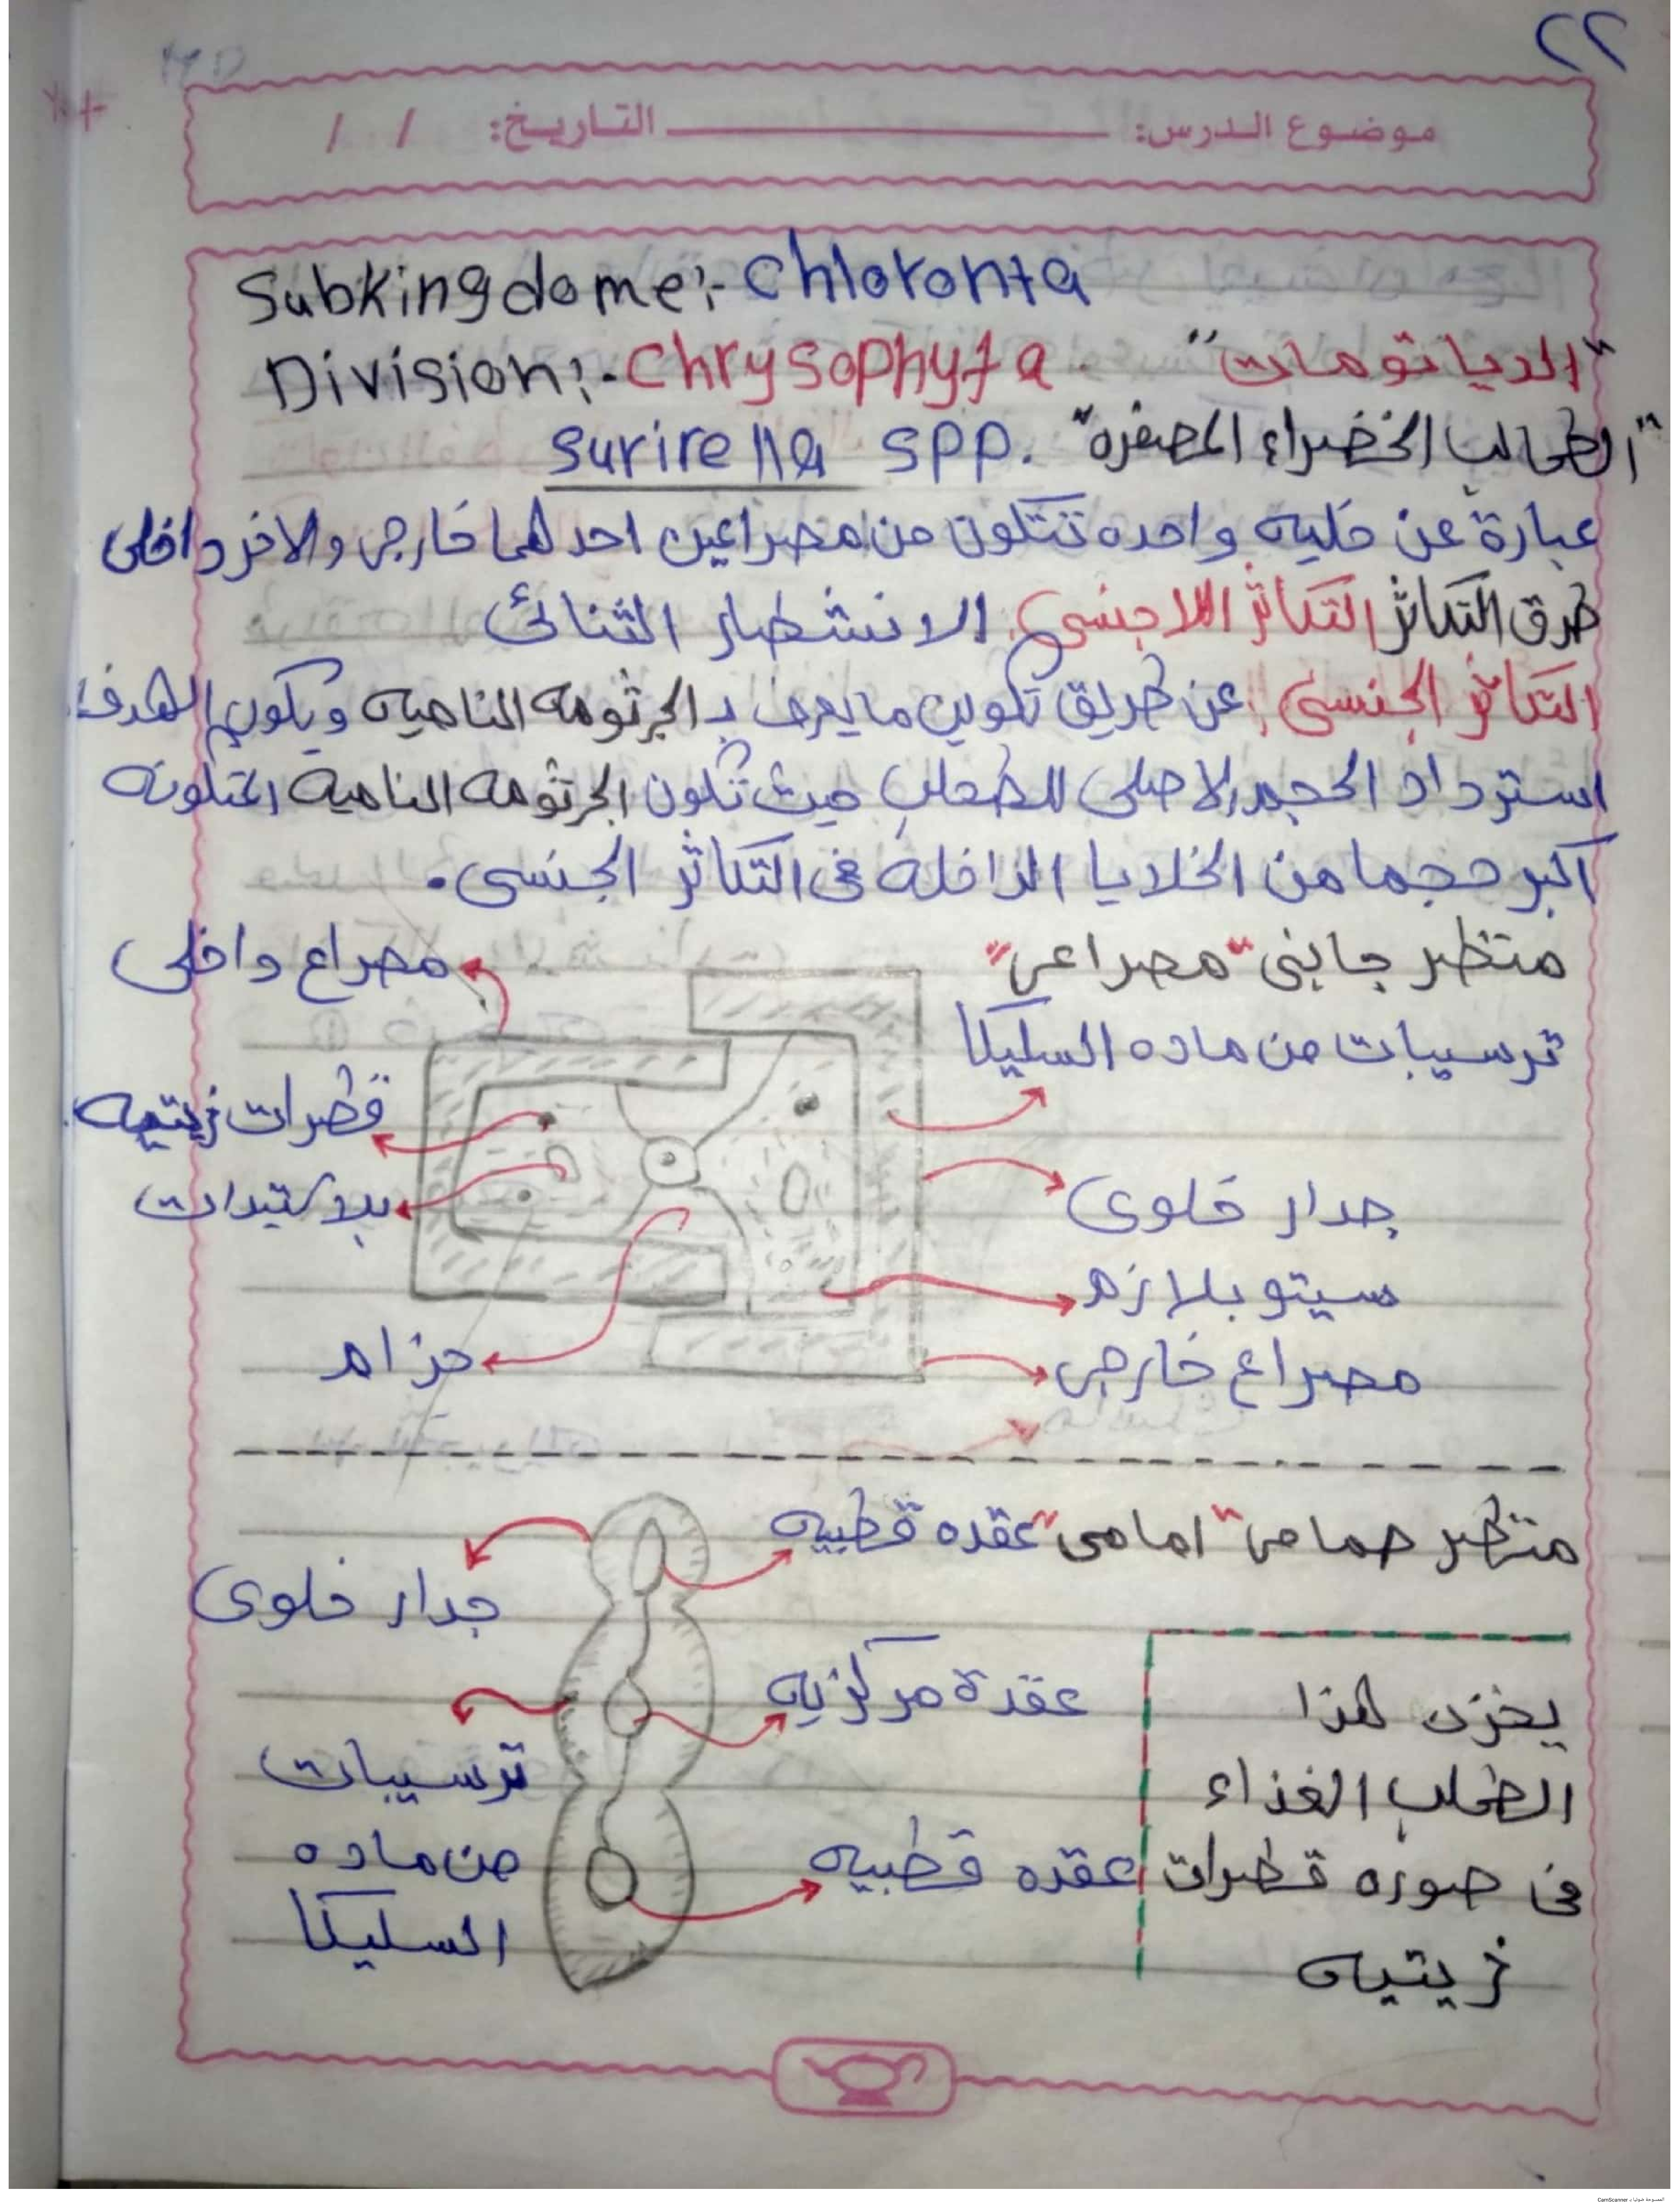 ٢٢
موضوع الدرس: التاريخ: / /
Subkingdome:- Chloronta
Division:- Chrysophyta "الدياتومات"
"الطحالب الخضراء المصفره" Surirella spp.
عبارة عن خليه واحده تتكون من مصراعين احدهما خارجى والاخر داخلى
طرق التكاثر التكاثر اللاجنسى: الانشطار الثنائى
التكاثر الجنسى: عن طريق تكوين ما يعرف بـ الجرثومه الناميه ويكون الهدف:
استرداد الحجم الاصلى للطحلب حيث تكون الجرثومه الناميه المتكونه
اكبر حجما من الخلايا الداخله فى التكاثر الجنسى.
منظر جابنى "مصراعى"
مصراع داخلى
ترسيبات من ماده السليكا
قطرات زيتيه
بلاستيدات
جدار خلوى
سيتوبلازم
حزام
مصراع خارجى
منظر حمامى "امامى" عقده قطبيه
جدار خلوى
عقدة مركزيه
يخزن هذا
ترسيبات
الطحلب الغذاء
من ماده
فى صوره قطرات
عقده قطبيه
السليكا
زيتيه
الممسوحة ضوئيا بـ CamScanner